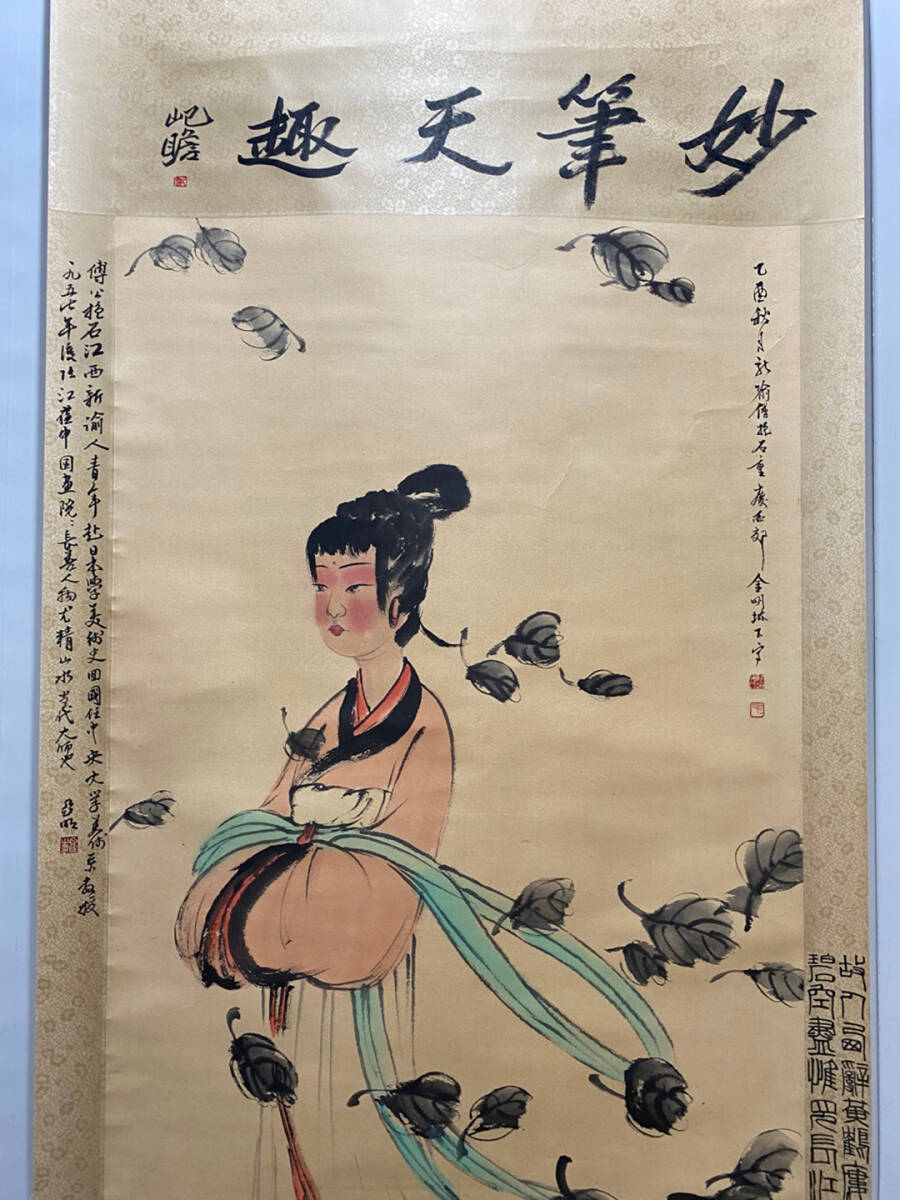 妙筆天趣
屺瞻
乙酉秋月新喻傅抱石重慶西郊金剛坡下寫
傅公抱石江西新諭人青年赴日本學美術史回國任中央大學美術系教授
九五七年後任江蘇中国畫院〻長善人物尤精山水当代大師也
亞明
故人西辭黃鶴
碧空盡惟見長江